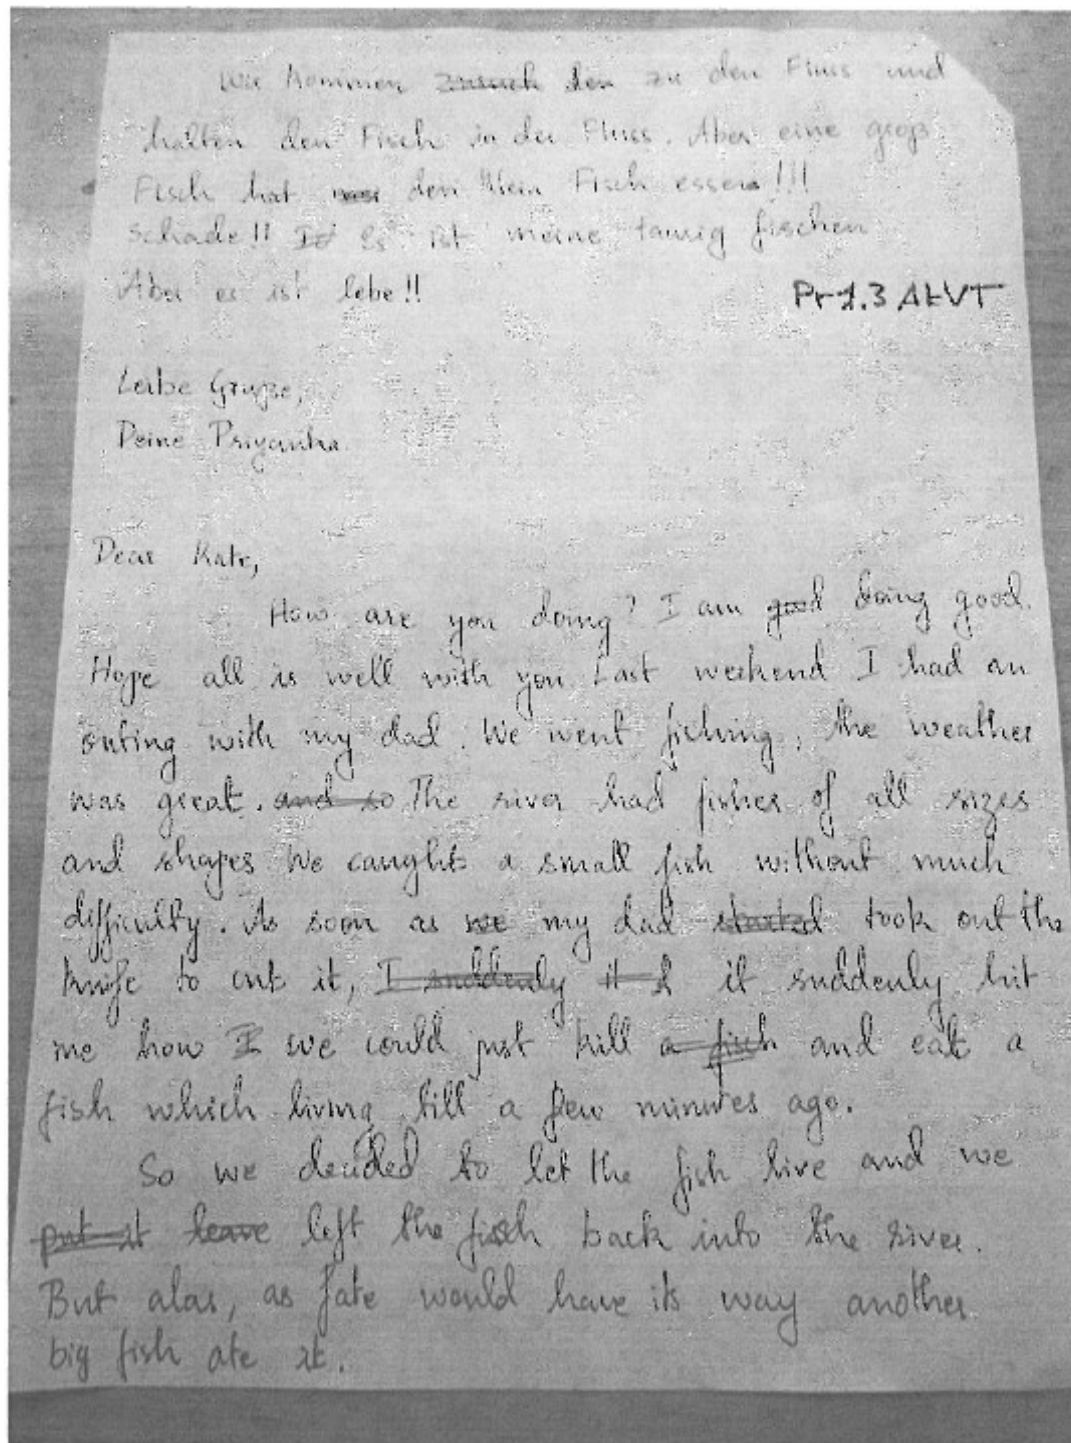 Wir kommen zuruck den zu den Fluss und
halten den Fisch in der Fluss. Aber eine groß
Fisch hat den klein Fisch essen!!!
Schade!! Es ist meine taurig fischen
Aber es ist lebe!!
Pr 1.3 AEVT
Leibe Gruße,
Deine Priyanka.
Dear Kate,
How are you doing? I am good doing good.
Hope all is well with you. Last weekend I had an
outing with my dad. We went fishing, the weather
was great. and so The river had fishes of all sizes
and shapes We caught a small fish without much
difficulty. As soon as we my dad started took out the
knife to cut it, I suddenly it it suddenly hit
me how I we could just kill a fish and eat a
fish which living till a few minutes ago.
So we decided to let the fish live and we
put it leave left the fish back into the river.
But alas, as fate would have its way another
big fish ate it.